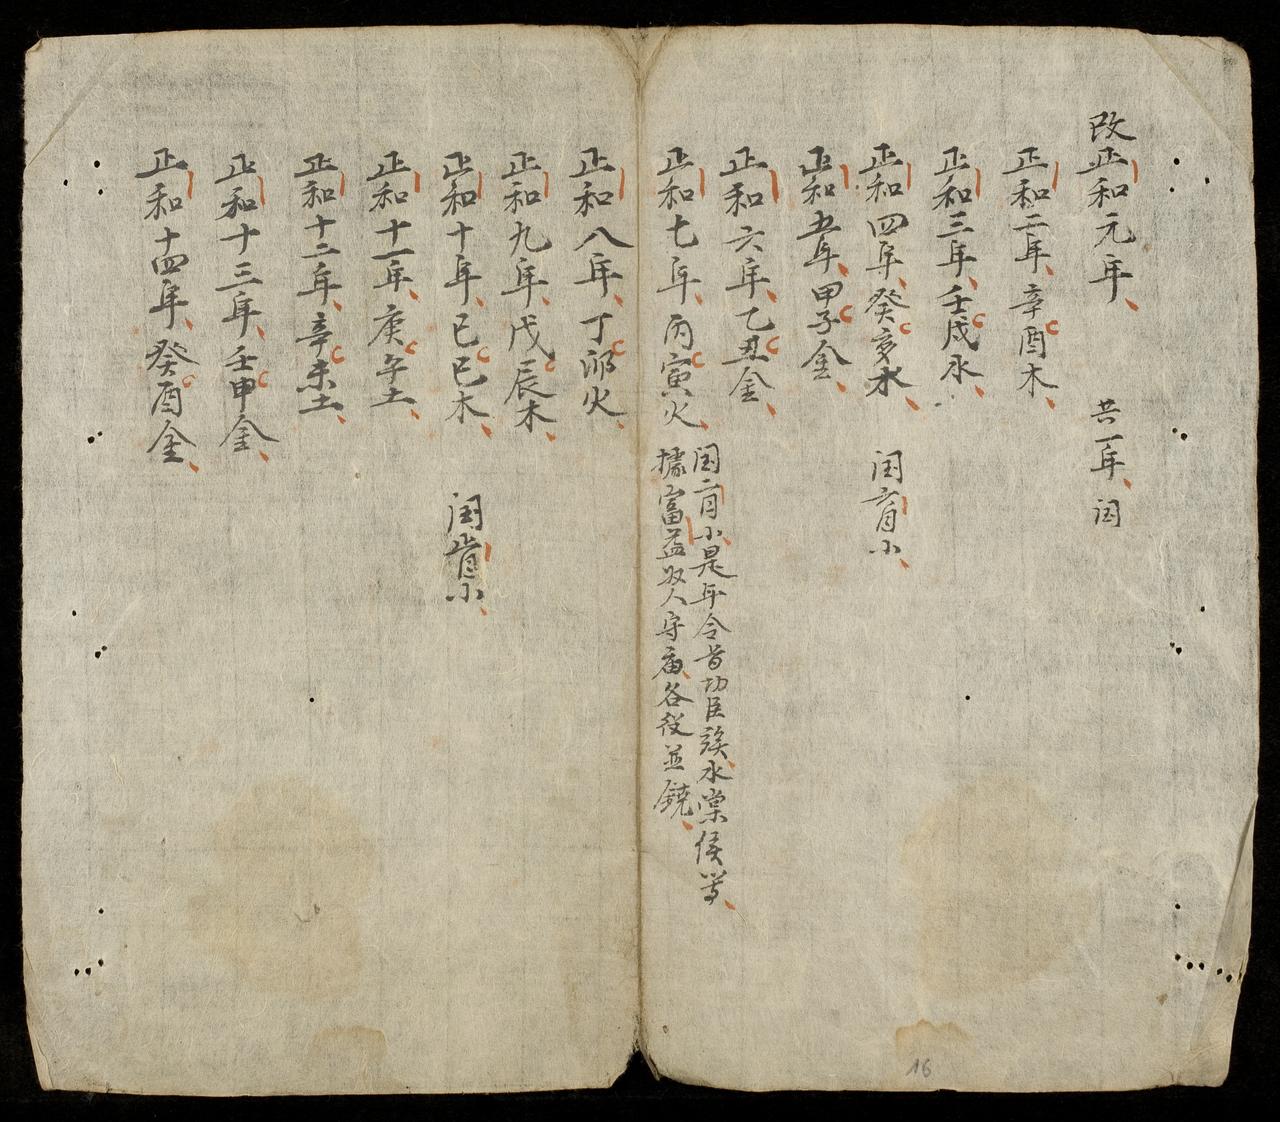 改正和元年 共一年 闰
正和二年辛酉木
正和三年壬戌水
正和四年癸亥水 闰育小
正和五年甲子金
正和六年乙丑金
正和七年丙寅火 闰二月小是年令昔功臣該水棠侯等
據富益奴人守廟各役並饒
正和八年丁卯火
正和九年戊辰木
正和十年己巳木 闰小
正和十一年庚午土
正和十二年辛未土
正和十三年壬申金
正和十四年癸酉金
16